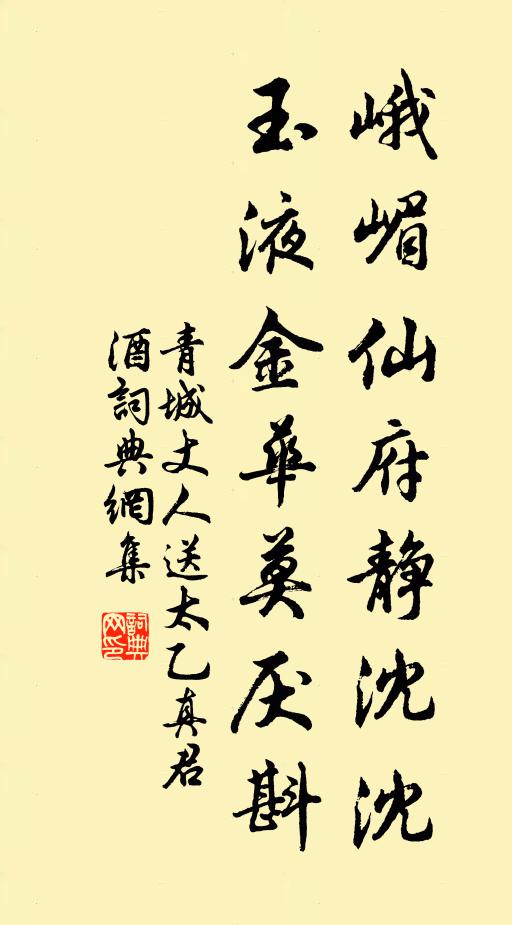 峨嵋仙府静沈沈
玉液金華莫厌斟
青城丈人送太乙真君
酒詞典網集
詞典
网印